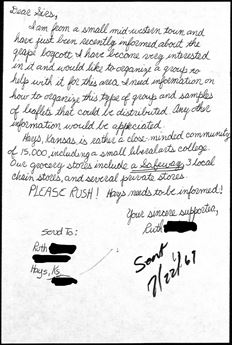 Dear Sirs,
I am from a small mid-western town and
have just been recently informed about the
grape boycott. I have become very interested
in it and would like to organize a group to
help with it for this area. I need information on
how to organize this type of group and samples
of leaflets that could be distributed. Any other
information would be appreciated.
Hays, Kansas is rather a close-minded community
of 15,000, including a small liberal arts college.
Our grocery stores include a Safeway, 3 local
chain stores, and several private stores.
PLEASE RUSH! Hays needs to be informed!
Your sincere supporter,
Ruth
Send To:
Ruth
Hays, Ks
Sent
7/22/69